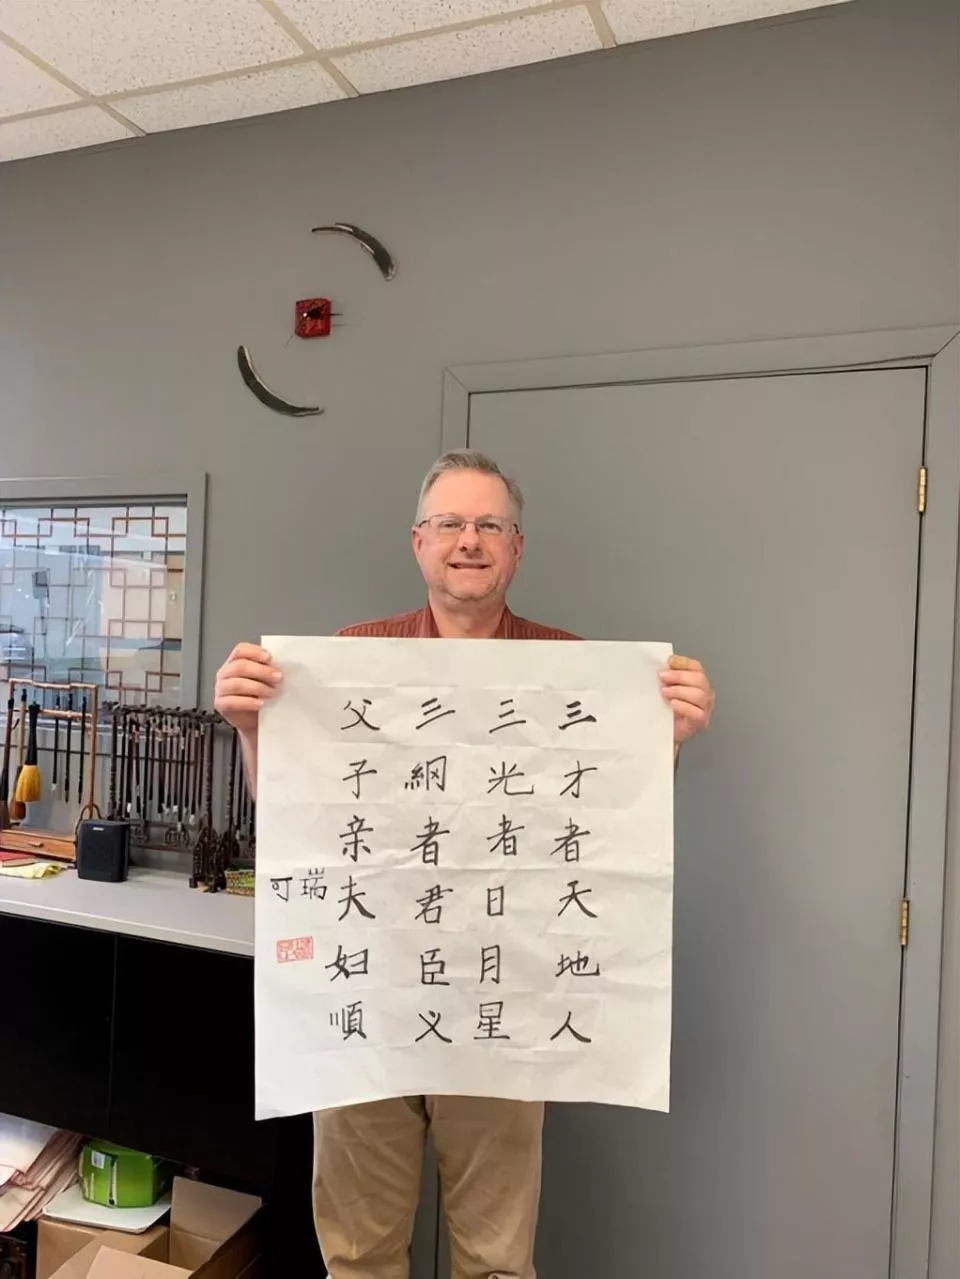 三才者天地人
三光者日月星
三綱者君臣义
父子亲夫妇順
瑞可